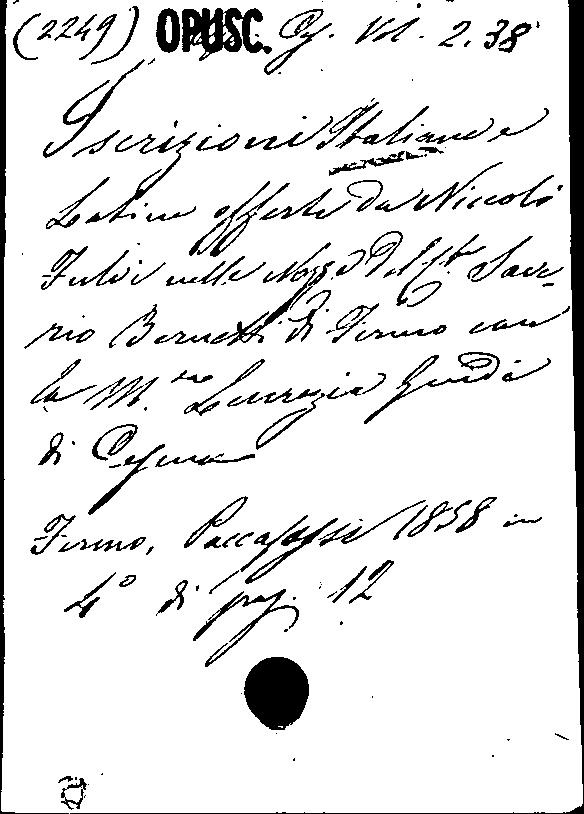 (2249) OPUSC. Vol. 2.38
Iscrizioni Italiane e
Latine offerte da Niccolò
Fulvi nelle Nozze Del Cte Save-
rio Bernetti di Fermo con
la M.sa Lucrezia Guidi
di Cesena
Fermo, Paccasassi 1858 in
4° di pag. 12